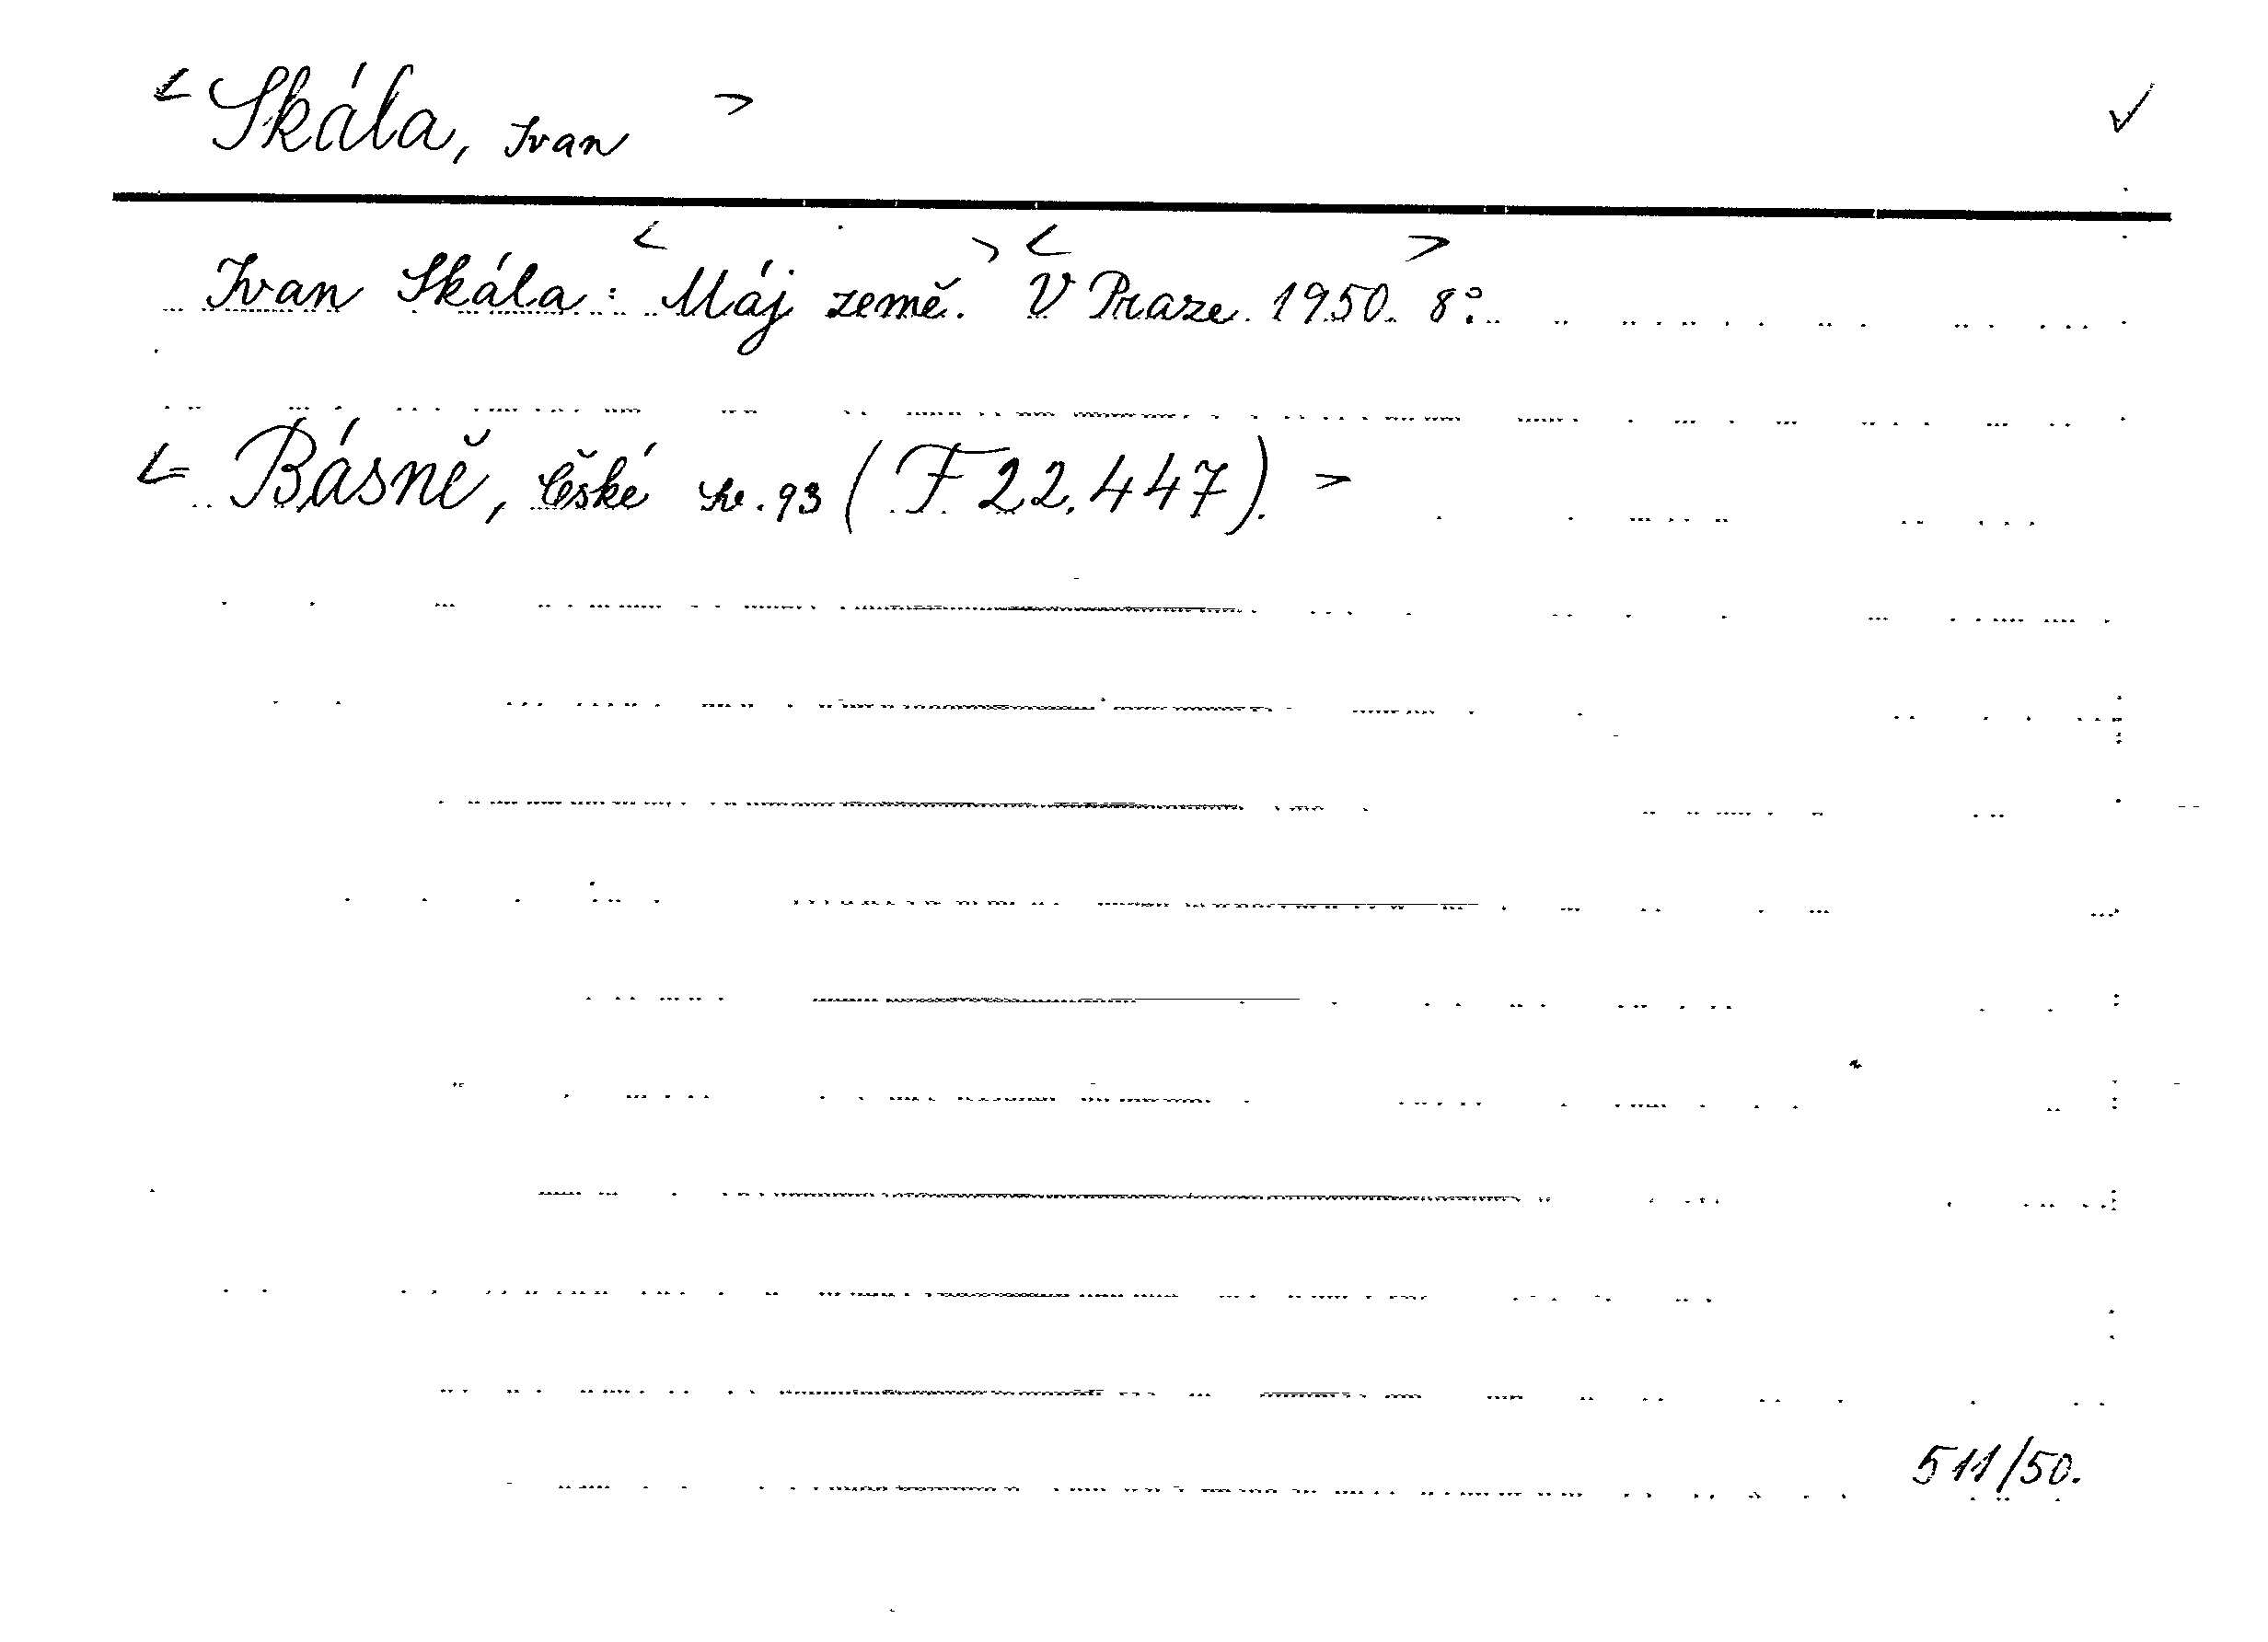 < Skála, Ivan > ✓
Ivan Skála: < Máj země. > < V Praze. 1950. > 8°.
< Básně, české sv. 93 (F 22.447). >
511/50.